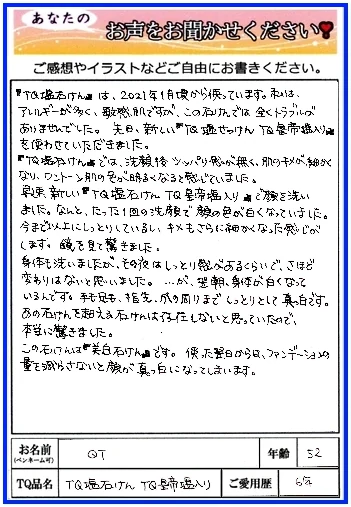 あなたの
お声をお聞かせください❢
ご感想やイラストなどご自由にお書きください。
『TQ塩石けん』は、2021年1月頃から使っています。私は、
アレルギーが多く、敏感肌ですが、この石けんでは全くトラブルが
ありませんでした。先日、新しい『TQ塩せっけん TQ皇帝塩入り』
を使わせていただきました。
『TQ塩石けん』では、洗顔後ツッパリ感が無く、肌のキメが細かく
なり、ワントーン肌の色が明るくなると感じていました。
早速、新しい『TQ塩石けん TQ皇帝塩入り』で顔を洗い
ました。なんと、たった1回の洗顔で顔の色が白くなっていました。
今まで以上にしっとりしているし、キメもさらに細かくなった感じが
します。鏡を見て驚きました。
身体も洗いましたが、その夜はしっとり感があるくらいで、さほど
変わりはないと思いました。…が、翌朝、身体が白くなって
いるんです。手も足も、指先、爪の周りまでしっとりとして真っ白です。
あの石けんを超える石けんは存在しないと思っていたので、
本当に驚きました。
この石けんは『美白石けん』です。使った翌日からは、ファンデーションの
量を減らさないと顔が真っ白になってしまいます。
お名前 QT 年齢 52
(ペンネーム可)
TQ品名 TQ塩石けん TQ皇帝塩入り ご愛用歴 6年